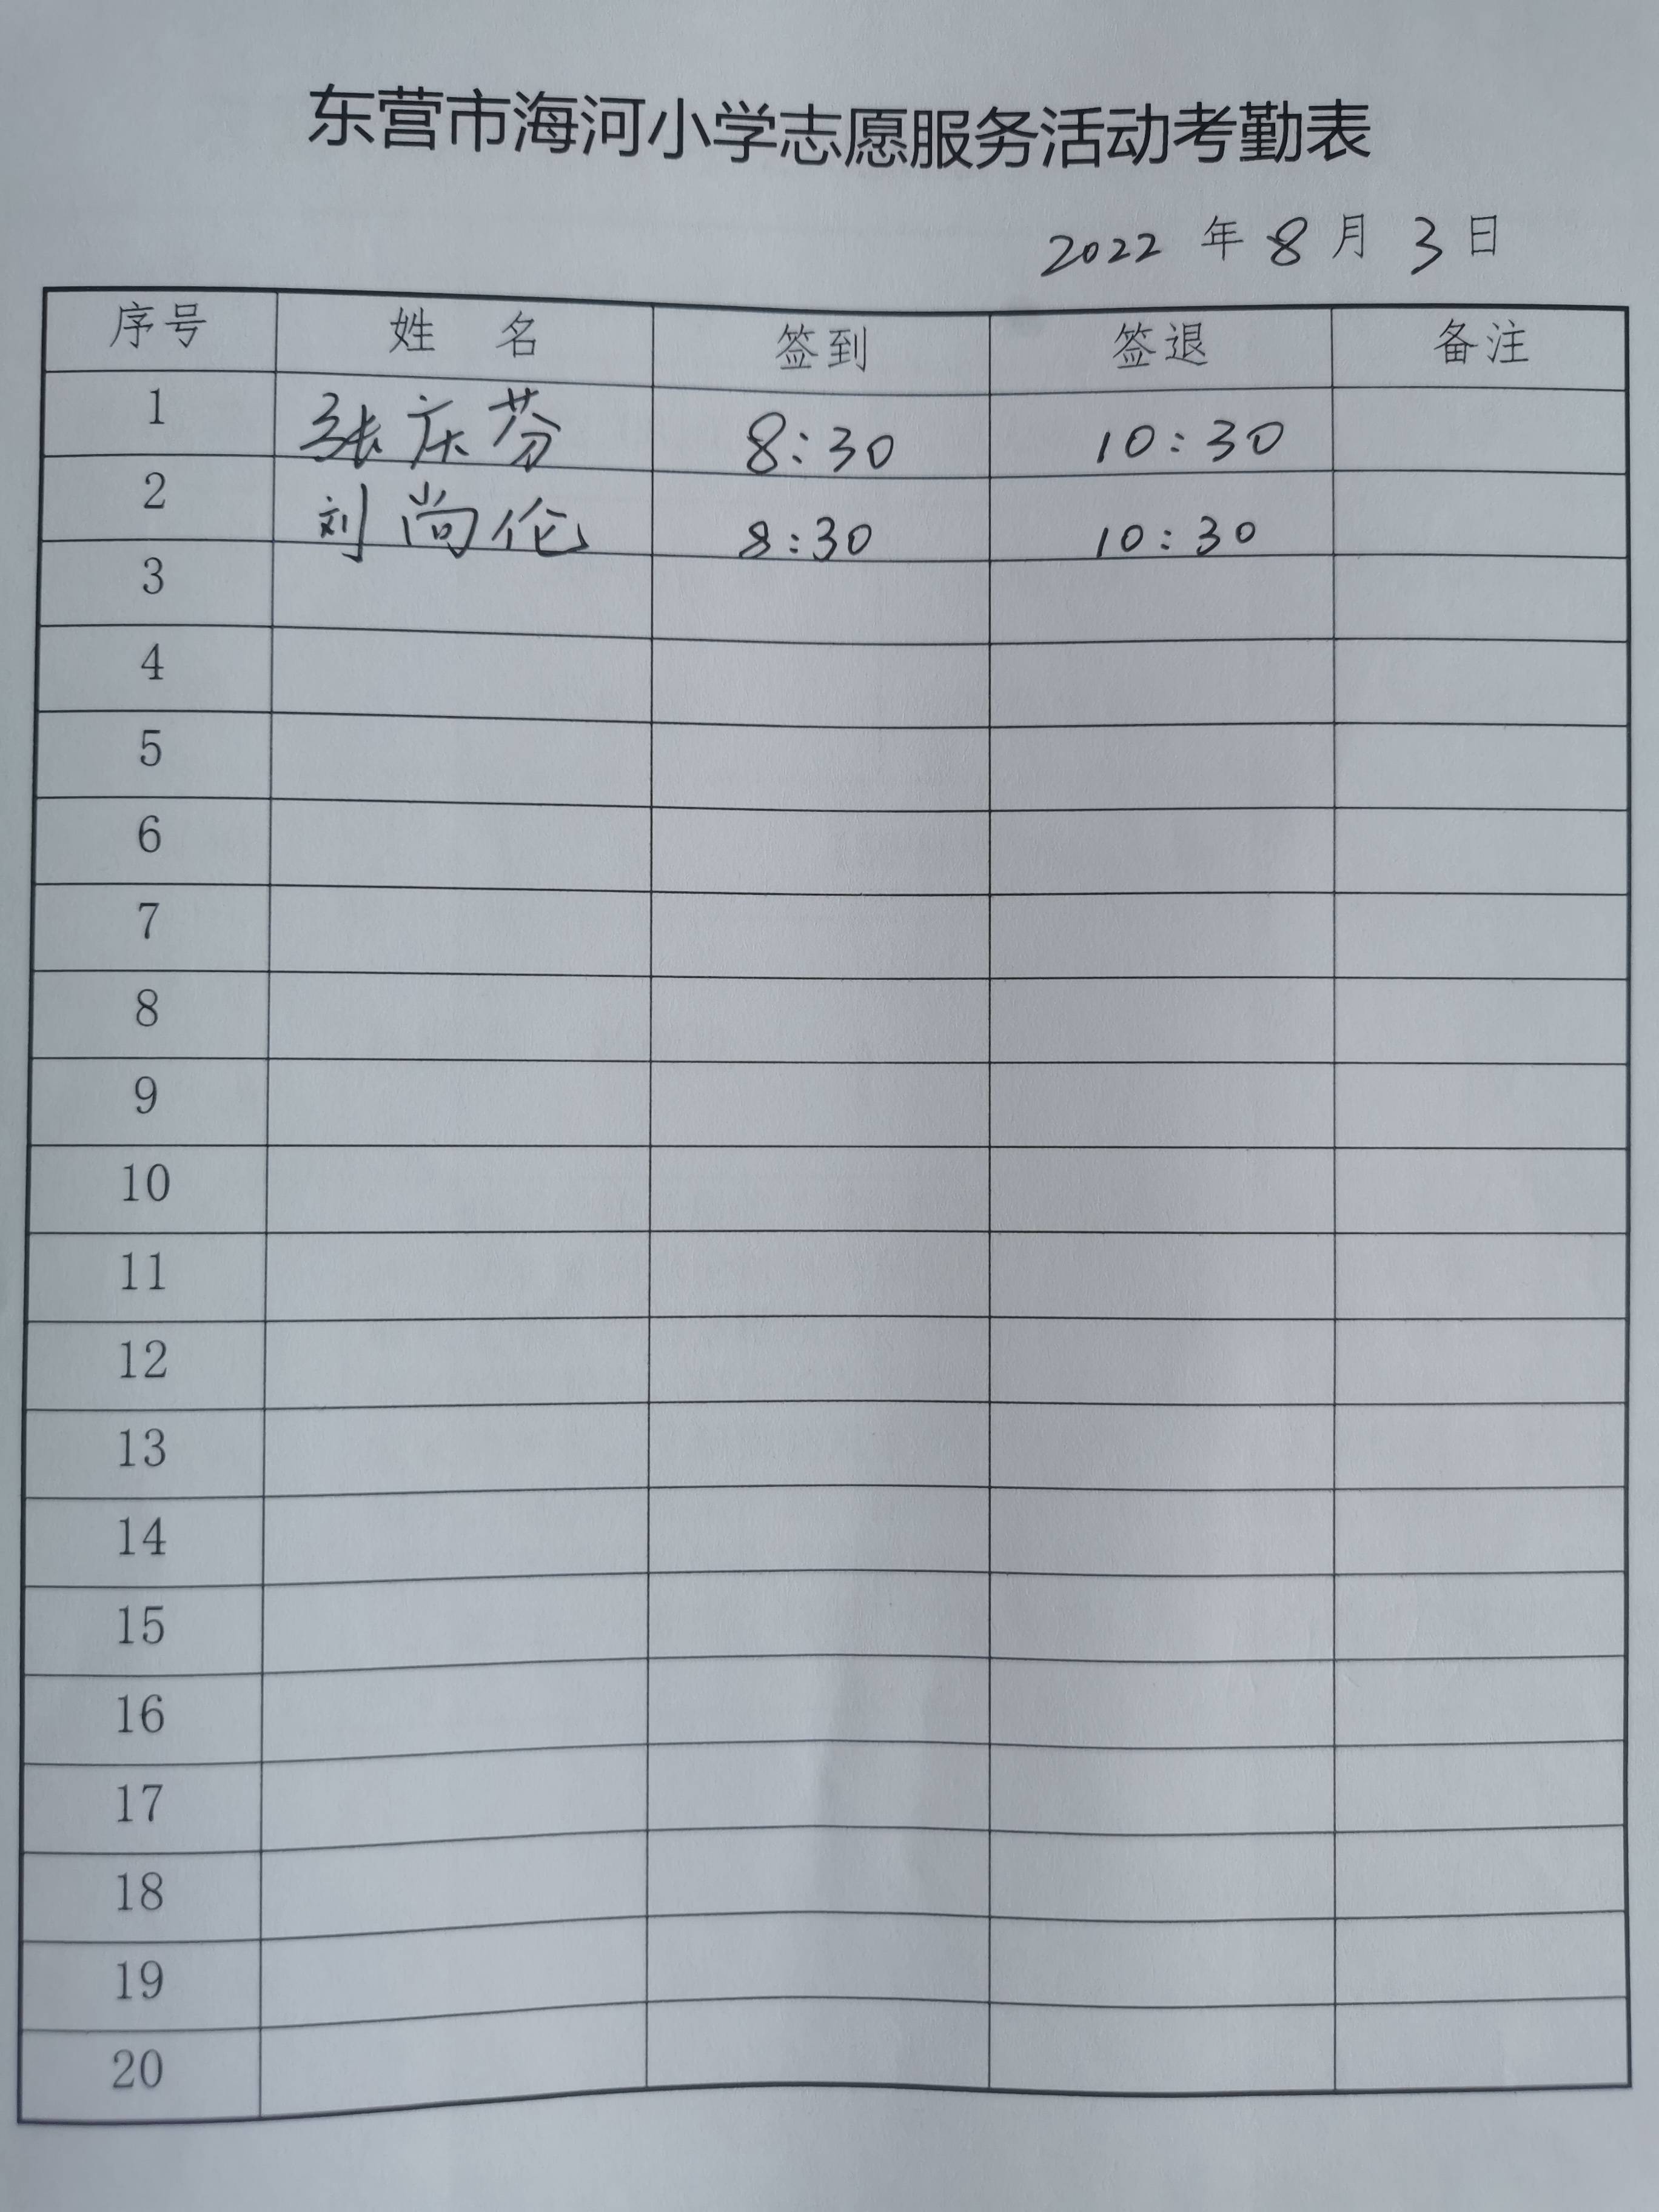 东营市海河小学志愿服务活动考勤表
2022 年 8 月 3 日
序号 姓 名 签到 签退 备注
1 张庆芬 8:30 10:30
2 刘尚伦 8:30 10:30
3
4
5
6
7
8
9
10
11
12
13
14
15
16
17
18
19
20